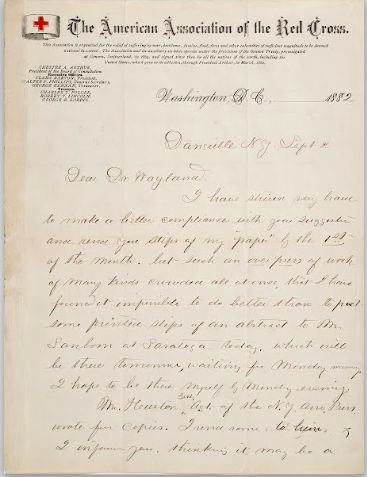 The American Association of the Red Cross.
This Association is organized for the relief of suffering by war, pestilence, famine, fires, floods and other calamities of sufficient magnitude to be deemed
national in extent. The Association and its auxiliary societies operate under the provisions of the Geneva Treaty, promulgated
at Geneva, Switzerland, in 1864, and signed since then by all the nations of the earth, including the
United States, which gave its adhesion, through President Arthur, in March, 1882.
CHESTER A. ARTHUR,
President of the Board of Consultation
Executive Officers
CLARA BARTON, President,
WALTER P. PHILLIPS, General Secretary,
GEORGE KENNAN, Treasurer,
Trustees
CHARLES J. FOLGER,
ROBERT T. LINCOLN,
GEORGE B. LORING.
Washington, D. C., 1882
Dansville N.Y. Sept 2
Dear Dr Wayland.
I have striven very hard
to make a better compliance with your suggestion
and send you slips of my "paper" by the 1st
of the month. but such an over press of work
of many kinds crowded all at once, that I have
found it impossible to do better than to post
some printed slips of an abstract to Mr.
Sanborn at Saratoga today, which will
be there tomorrow, waiting for Monday morning
I hope to be there myself by Monday evening.
Mr. Houston Agt. of the N.Y. Press
wrote for Copies. I send some to him
I inform you. thinking it may be a